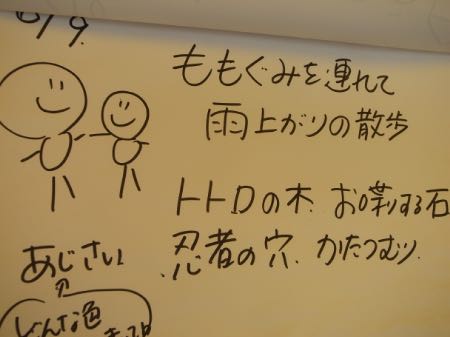 6/9.
ももぐみを連れて
雨上がりの散歩
トトロの木. お喋りする石
忍者の穴. かたつむり
あじさい
の
どんな色